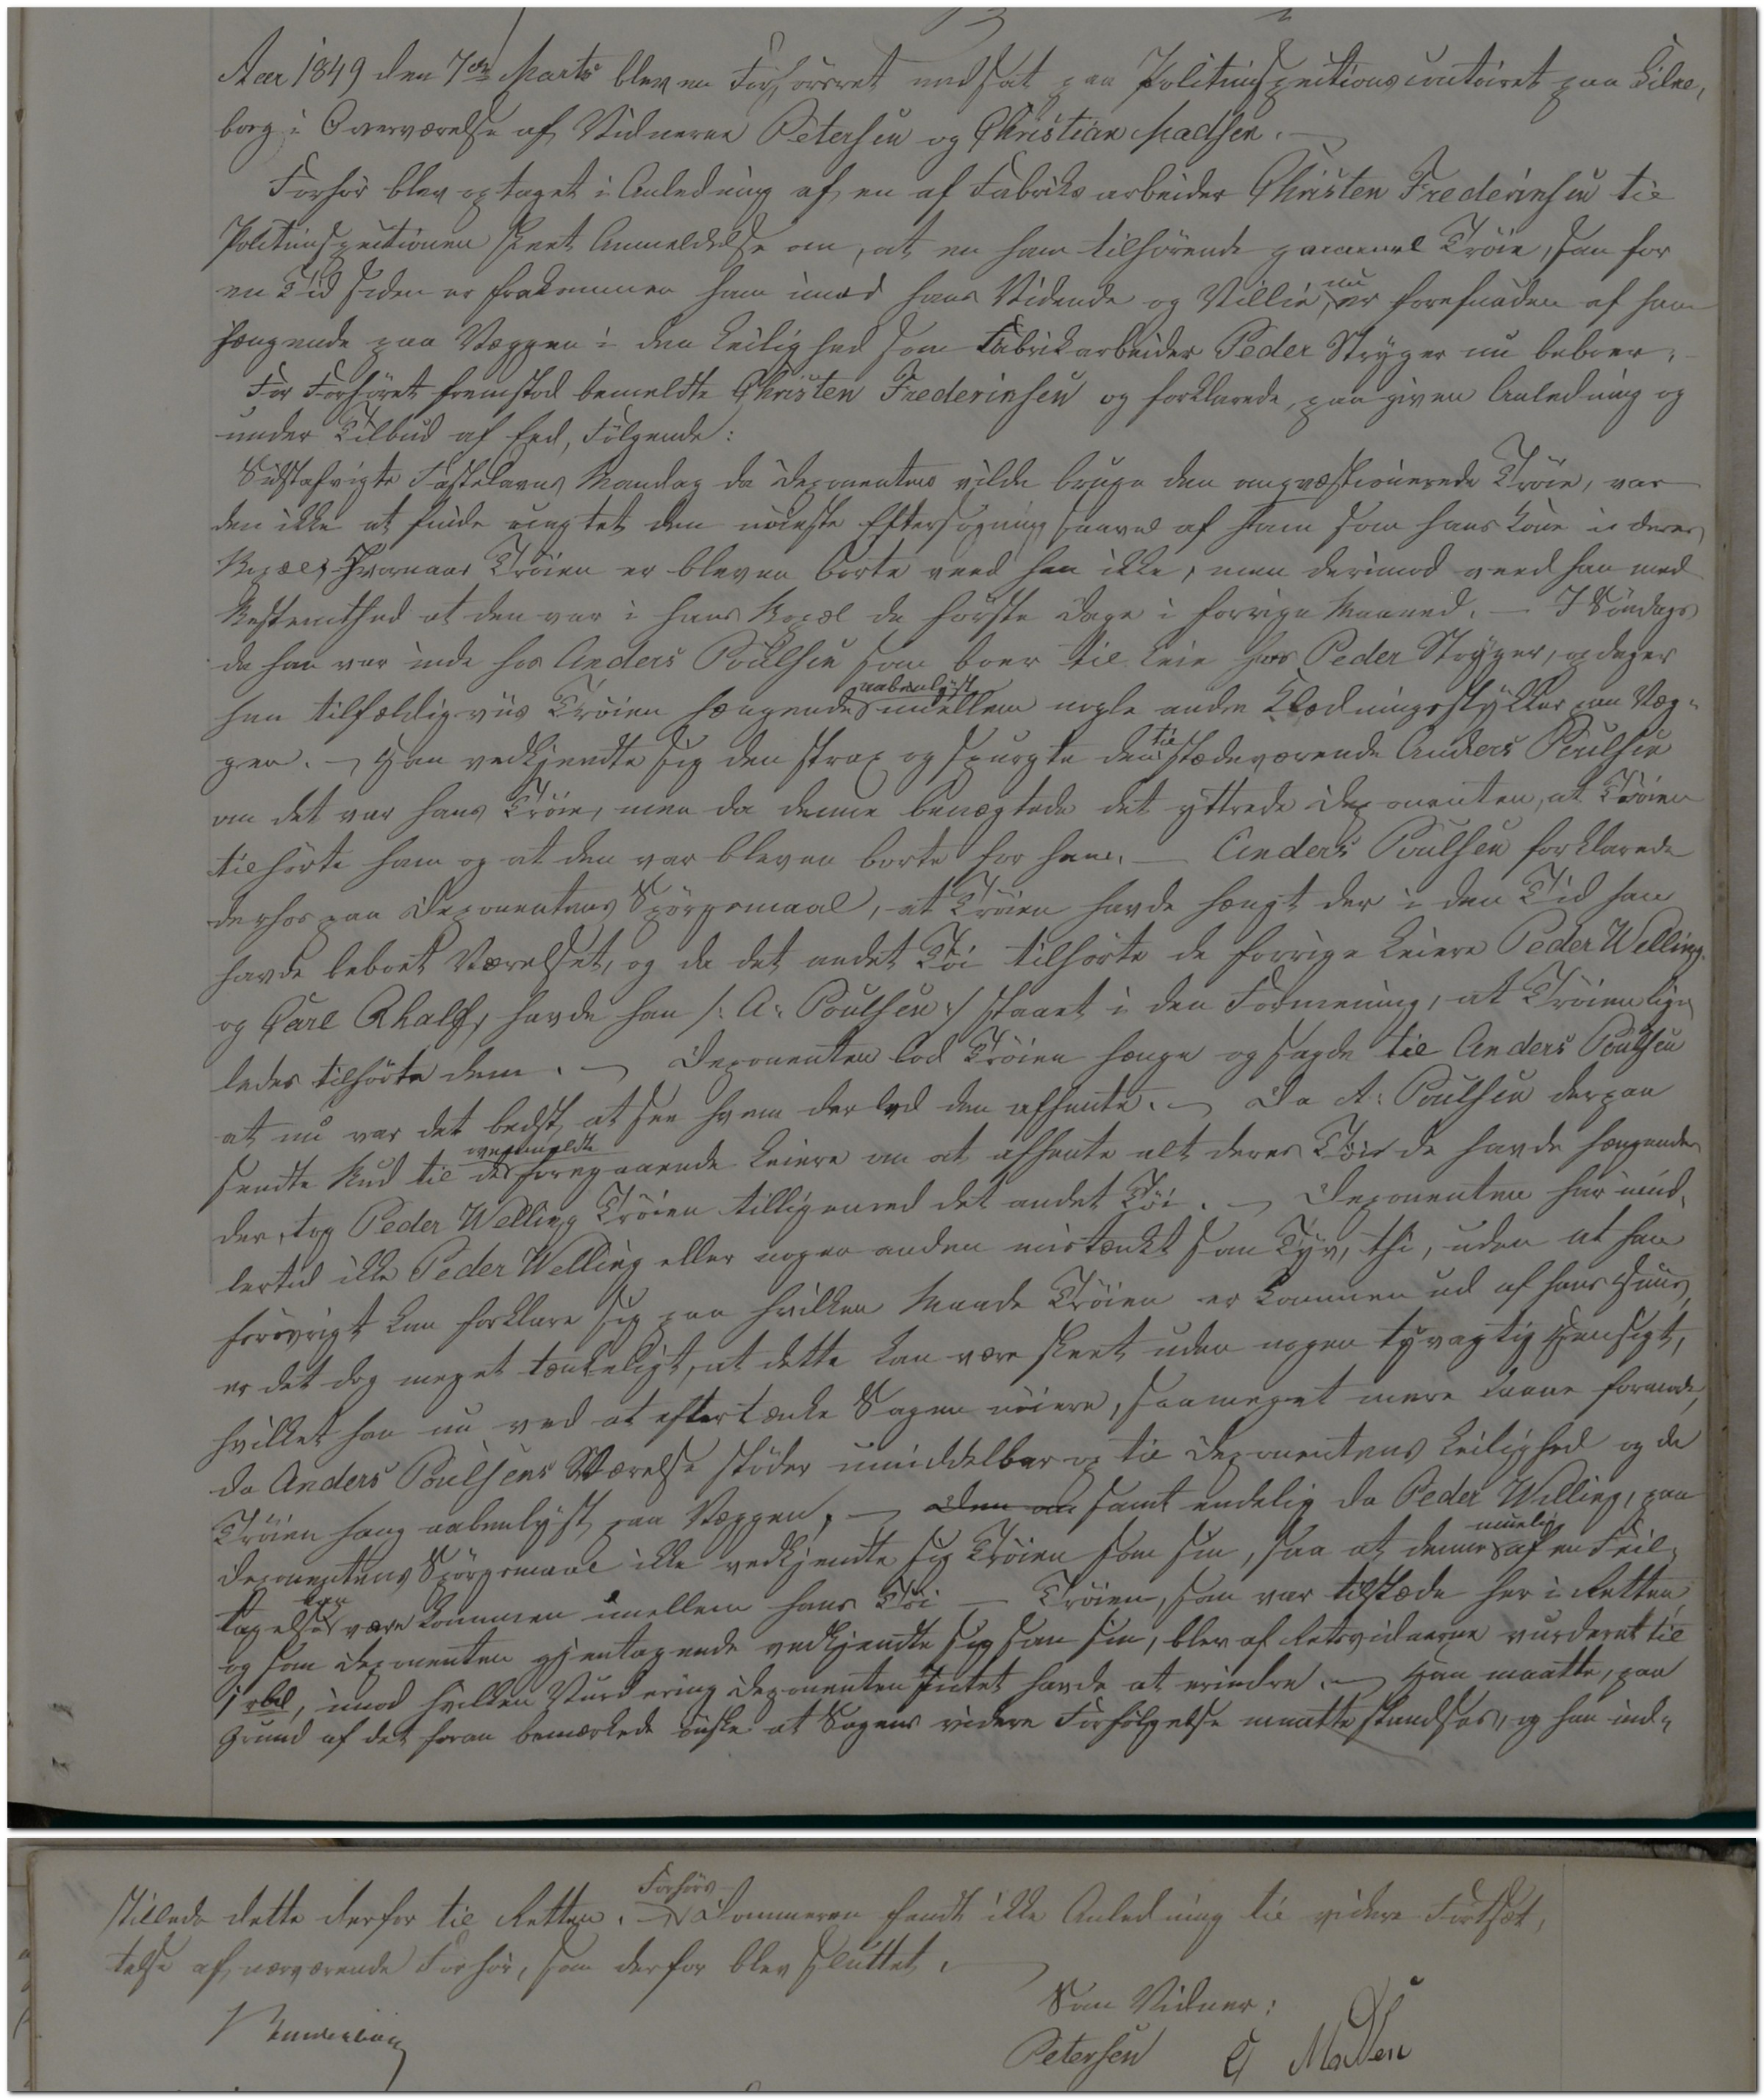 Aar 1849 den 7de Marts blev en Forhörsret nedsat paa Politiinspectionscontoiret paa Silke,
borg i Overværelse af Vidnerne Petersen og Christian Madsen. —
Forhör blev optaget i Anledning af en af Fabriksarbeider Christen Frederinsen til
Politiinspectionen skeet Anmeldelse om, at en ham tilhörende gammel Tröie, som for
en Tid siden er frakommen ham imod hans Vidende og Villie, nu er forefunden af ham
hængende paa Væggen i den Leilighed som Fabrikarbeider Peder Stryger nu beboer. —
For Forhöret fremstod bemeldte Christen Frederinsen og forklarede, paa given Anledning og
under Tilbud af Eed, Fölgende:
Sidstafvigte Fastelavns Mandag da Deponenten vilde bruge den omqvæstionerede Tröie, var
den ikke at finde uagtet den nöieste Eftersögning saavel af ham som hans Kone i deres
Bopæl, Hvornaar Tröien er bleven borte veed han ikke, men derimod veed han med
Bestemthed at den var i hans Bopæl de förste Dage i forrige Maaned. — I Söndags
da han var inde hos Anders Poulsen som boer til Leie hos Peder Stryger, opdager
han tilfældigviis Tröien hængende aabenlyst imellem nogle andre Klædningsstykker paa Væg-
gen. — Han vedkjendte sig den strax og spurgte den tilstædeværende Anders Poulsen
om det var hans Tröie, men da denne benægtede det yttrede Deponenten, at Tröien
tilhörte ham og at den var bleven borte for ham. — Anders Poulsen forklarede
derhos paa Deponentens Spörgsmaal, at Tröien havde hængt der i den Tid han
havde beboet Værelset, og da det andet Töi tilhörte de forrige Leiere Peder Welling
og Carl Rhalff, havde han /: A: Poulsen :/ staaet i den Formening, at Tröien lige
ledes tilhörte dem. — Deponenten lod Tröien hænge og sagde til Anders Poulsen
at nu var det bedst at see hvem der lod den afhente. — Da A: Poulsen derpaa
sendte Bud til de ovenmeldte foregaaende Leiere om at afhente alt deres Töi de havde hængende
der, tog Peder Welling Tröien tilligemed det andet Töi. — Deponenten har imid,
lertid ikke Peder Welling eller nogen anden mistænkt som Tyv, thi, uden at han
forövrigt kan forklare sig paa hvilken Maade Tröien er kommen ud af hans Huus,
er det dog meget tænkeligt, at dette kan være skeet uden nogen tyvagtig Hensigt,
hvilket han nu ved at eftertænke Sagen nöiere, saameget mere maae formode,
da Anders Poulsens Værelse stöder umiddelbar op til Deponentens Leilighed og da
Tröien hang aabenlyst paa Væggen, — Den om samt endelig da Peder Welling, paa
Deponentens Spörgsmaal ikke vedkjendte sig Tröien som sin, saa at denne muelig af en Feil,
tagelse kan være kommen imellem hans Töi — Tröien, som var tilstæde her i Retten
og som Deponenten gjentagende vedkjendte sig som sin, blev af Retsvidnerne vurderet til
1 rbd, imod hvilken Vurdering Deponenten Intet havde at erindre. — Han maatte, paa
Grund af det foran bemærkede önske at Sagens videre Forfölgelse maatte standses, og han ind-
stillede dette derfor til Retten. — Forhörs Dommeren fandt ikke Anledning til videre Fortsæt,
telse af nærværende Forhör, som derfor blev sluttet. —
Som Vidner:
Petersen C Madsen